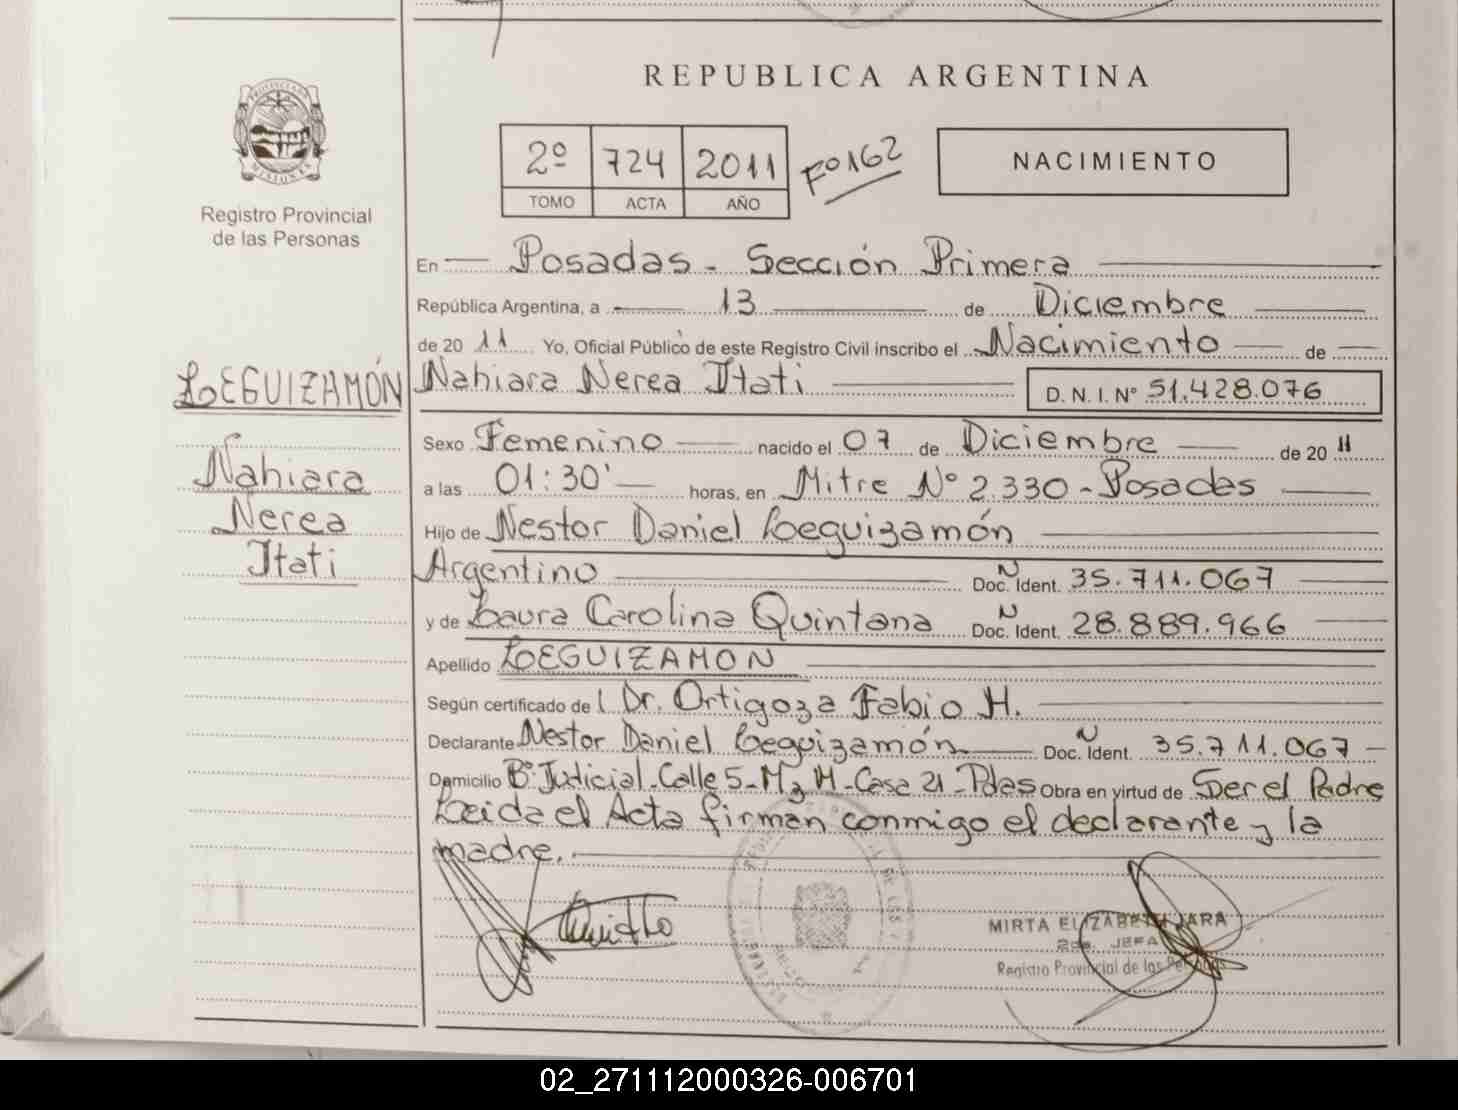 REPUBLICA ARGENTINA
PROVINCIA DE
MISIONES
Registro Provincial
de las Personas
2º 724 2011 Fº 162
TOMO ACTA AÑO
NACIMIENTO
En Posadas - Sección Primera
República Argentina, a 13 de Diciembre
de 20 11 Yo, Oficial Público de este Registro Civil inscribo el Nacimiento de
LOEGUIZAMÓN
Nahiara Nerea Itati D. N. I. Nº 51.428.076
Sexo Femenino nacido el 07 de Diciembre de 20 11
Nahiara
Nerea
Itati
a las 01:30' horas, en Mitre Nº 2330 - Posadas
Hijo de Nestor Daniel Loeguizamón
Argentino Doc. Ident. N 35.711.067
y de Laura Carolina Quintana Doc. Ident. N 28.889.966
Apellido LOEGUIZAMON
Según certificado de l Dr. Ortigoza Fabio H.
Declarante Nestor Daniel Loeguizamón Doc. Ident. N 35.711.067
Domicilio Bº Judicial - Calle 5 - Mz H - Casa 21 - Pdas Obra en virtud de Ser el Padre
Leida el Acta firman conmigo el declarante y la
madre.
MIRTA ELIZABETH JARA
2da. JEFA
Registro Provincial de las Personas
02_271112000326-006701